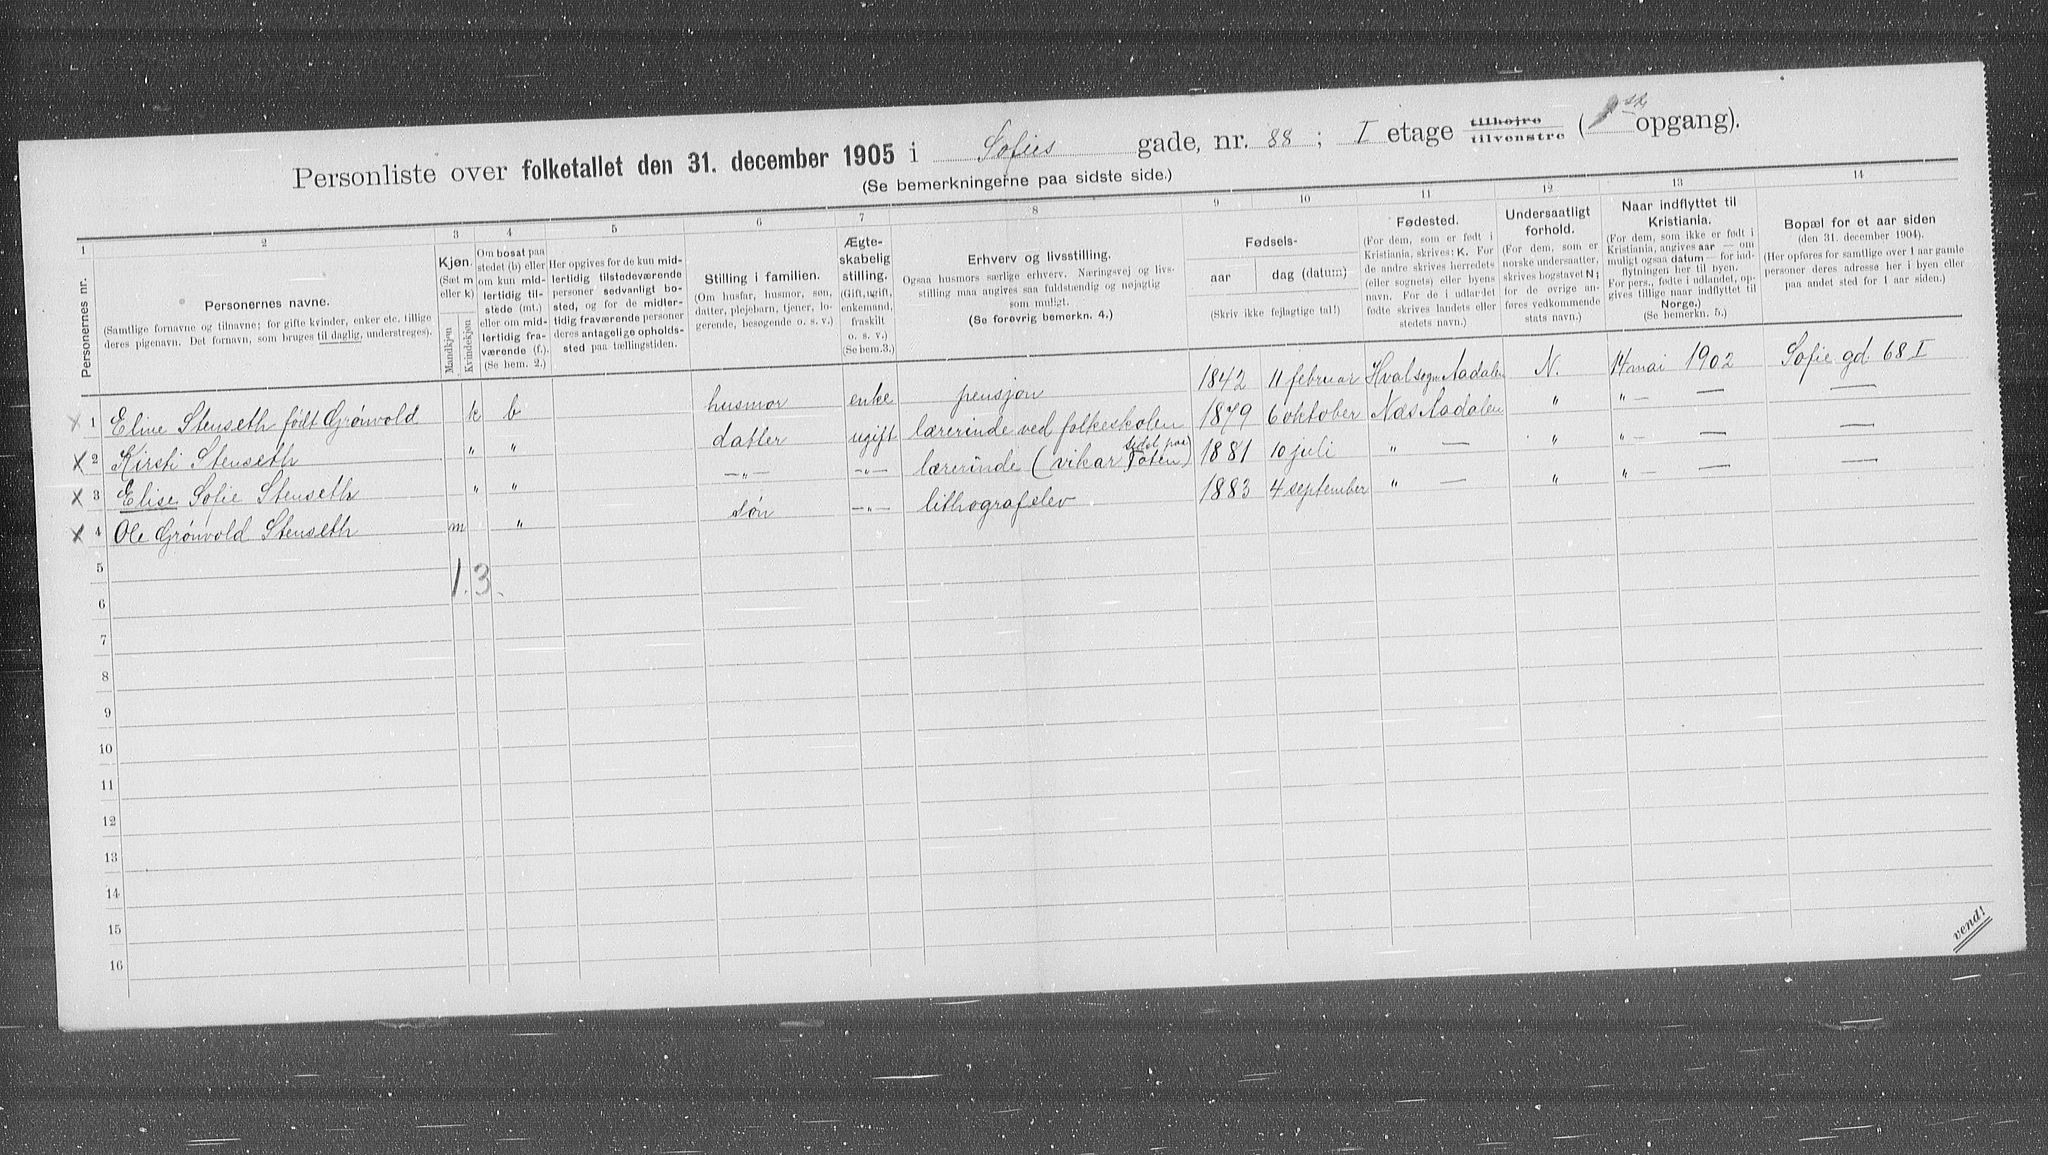 Personliste over folketallet den 31. december 1905 i Sofies gade, nr. 88; I etage tilhøjre tilvenstre ( opgang).
(Se bemerkningerne paa sidste side.)
1 2 3 4 5 6 7 8 9 10 11 12 13 14
Personernes nr.
Personernes navne.
(Samtlige fornavne og tilnavne; for gifte kvinder, enker etc. tillige
deres pigenavn. Det fornavn, som bruges til daglig, understreges).
Kjøn.
(Sæt m
eller k)
Mandkjøn
Kvindekjøn
Om bosat paa
stedet (b) eller
om kun mid-
lertidig til-
stede (mt.)
eller om mid-
lertidig fra-
værende (f.)
(Se bem. 2.)
Her opgives for de kun mid-
lertidig tilstedeværende
personer sedvanligt bo-
sted, og for de midler-
tidig fraværende personer
deres antagelige opholds-
sted paa tællingstiden.
Stilling i familien.
(Om husfar, husmor, søn,
datter, plejebarn, tjener, lo-
gerende, besøgende o. s. v.)
Ægte-
skabelig
stilling.
(Gift, ugift,
enkemand,
fraskilt
o. s. v.)
(Se bem. 3.)
Erhverv og livsstilling.
Ogsaa husmors særlige erhverv. Næringsvej og livs-
stilling maa angives saa fuldstændig og nøjagtig
som muligt.
(Se forøvrig bemerkn. 4.)
Fødsels-
aar dag (datum)
(Skriv ikke fejlagtige tal!)
Fødested.
(For dem, som er født i
Kristiania, skrives: K. For
de andre skrives herredets
(eller sognets) eller byens
navn. For de i udlandet
fødte skrives landets eller
stedets navn.)
Undersaatligt
forhold.
(For dem, som er
norske undersaatter,
skrives bogstavet N;
for de øvrige an-
føres vedkommende
stats navn.)
Naar indflyttet til
Kristiania.
(For dem, som ikke er født i
Kristiania, angives aar — om
muligt ogsaa datum — for ind-
flytningen her til byen.
For pers., fødte i udlandet, op-
gives tillige naar indflyttet til
Norge.)
(Se bemerkn. 5.)
Bopæl for et aar siden
(den 31. december 1904).
(Her opføres for samtlige over 1 aar gamle
personer deres adresse her i byen eller
paa andet sted for 1 aar siden.)
x 1 Eline Stenseth født Grønvold k b husmor enke pensjon 1842 11 februar Hval sogn Aadalen N. 14 mai 1902 Sofie gd 68 I
x 2 Kirsti Stenseth " " datter ugift lærerinde ved folkeskolen 1879 6 oktober Næs Aadalen " " — — —
x 3 Elise Sofie Stenseth " " —"— —"— lærerinde (vikar Toten) 1881 10 juli " — " " — — —
x 4 Ole Grønvold Stenseth m " søn —"— lithografelev 1883 4 september " — " " — — —
5
1. 3.
6
7
8
9
10
11
12
13
14
15
16
vend!